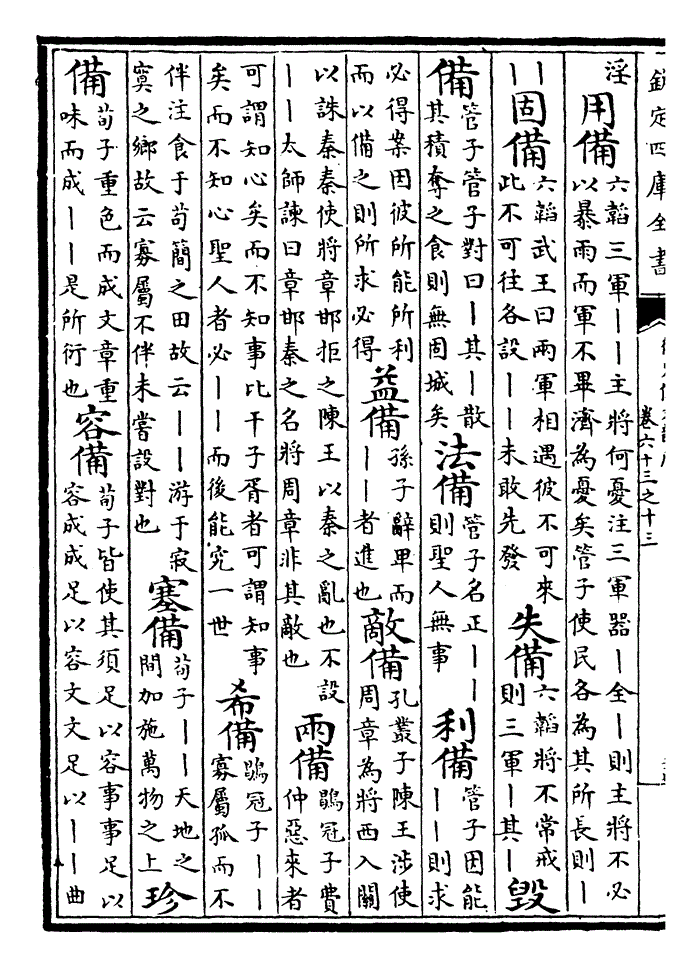 欽定四庫全書
卷六十三之十三
淫
用備
六韜三軍丨丨主將何憂注三軍器丨全丨則主將不必
以暴雨而軍不畢濟為憂矣管子使民各為其所長則丨
丨丨
固備
六韜武王曰兩軍相遇彼不可來
此不可往各設丨丨未敢先發
失備
六韜將不常戒
則三軍丨其丨
毀
備
管子管子對曰丨其丨散
其積奪之食則無固城矣
法備
管子名正丨丨
則聖人無事
利備
管子因能
丨丨則求
必得案因彼所能所利
而以備之則所求必得
益備
孫子辭卑而
丨丨者進也
敵備
孔叢子陳王涉使
周章為將西入關
以誅秦秦使將章邯拒之陳王以秦之亂也不設
丨丨太師諫曰章邯秦之名將周章非其敵也
兩備
鶡冠子費
仲惡來者
可謂知心矣而不知事比干子胥者可謂知事
矣而不知心聖人者必丨丨而後能究一世
希備
鶡冠子丨丨
寡屬孤而不
伴注食于苟簡之田故云丨丨游于寂
寞之鄉故云寡屬不伴未嘗設對也
塞備
荀子丨丨天地之
間加施萬物之上
珍
備
荀子重色而成文章重
味而成丨丨是所衍也
容備
荀子皆使其須足以容事事足以
容成成足以容文文足以丨丨曲